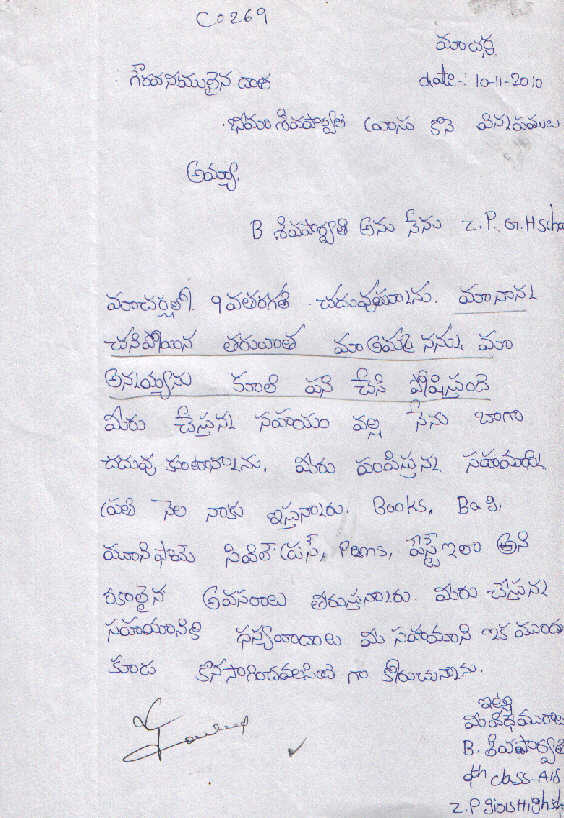 C0269
మాచర్ల
గౌరవనీయులైన దాత
date-: 10-11-2010
శివపార్వతి వ్రాయు
అమ్మా,
B శివపార్వతి అను నేను Z.P. G.H
మాచర్లలో 9వతరగతి చదువుతున్నాను. మా నాన్న
చనిపోయిన తరువాత మా అమ్మ నన్ను మా
అన్నయ్యను కూలి పని చేసి పోషిస్తుంది
మీరు చేస్తున్న సహయం వల్ల నేను బాగా
చదువు కుంటున్నాను. మీరు పంపిస్తున్న సహయాన్ని
ప్రతి నెల నాకు ఇస్తున్నారు. Books, Bag,
యూనిఫాం సివిల్ డ్రస్, Pens, పేస్ట్ ఇలా అని
రకాలైన అవసరాలు తీరుస్తున్నారు. మీరు చేస్తున్న
సహయానికి ధన్యవాదాలు మీ సహయాన్ని ఇక ముందు
కూడా కొనసాగించవలసిందిగా కోరుచున్నాను.
ఇట్లు
మీ విధేయురాలు
B. శివపార్వతి
9th class
Z.P Girls High